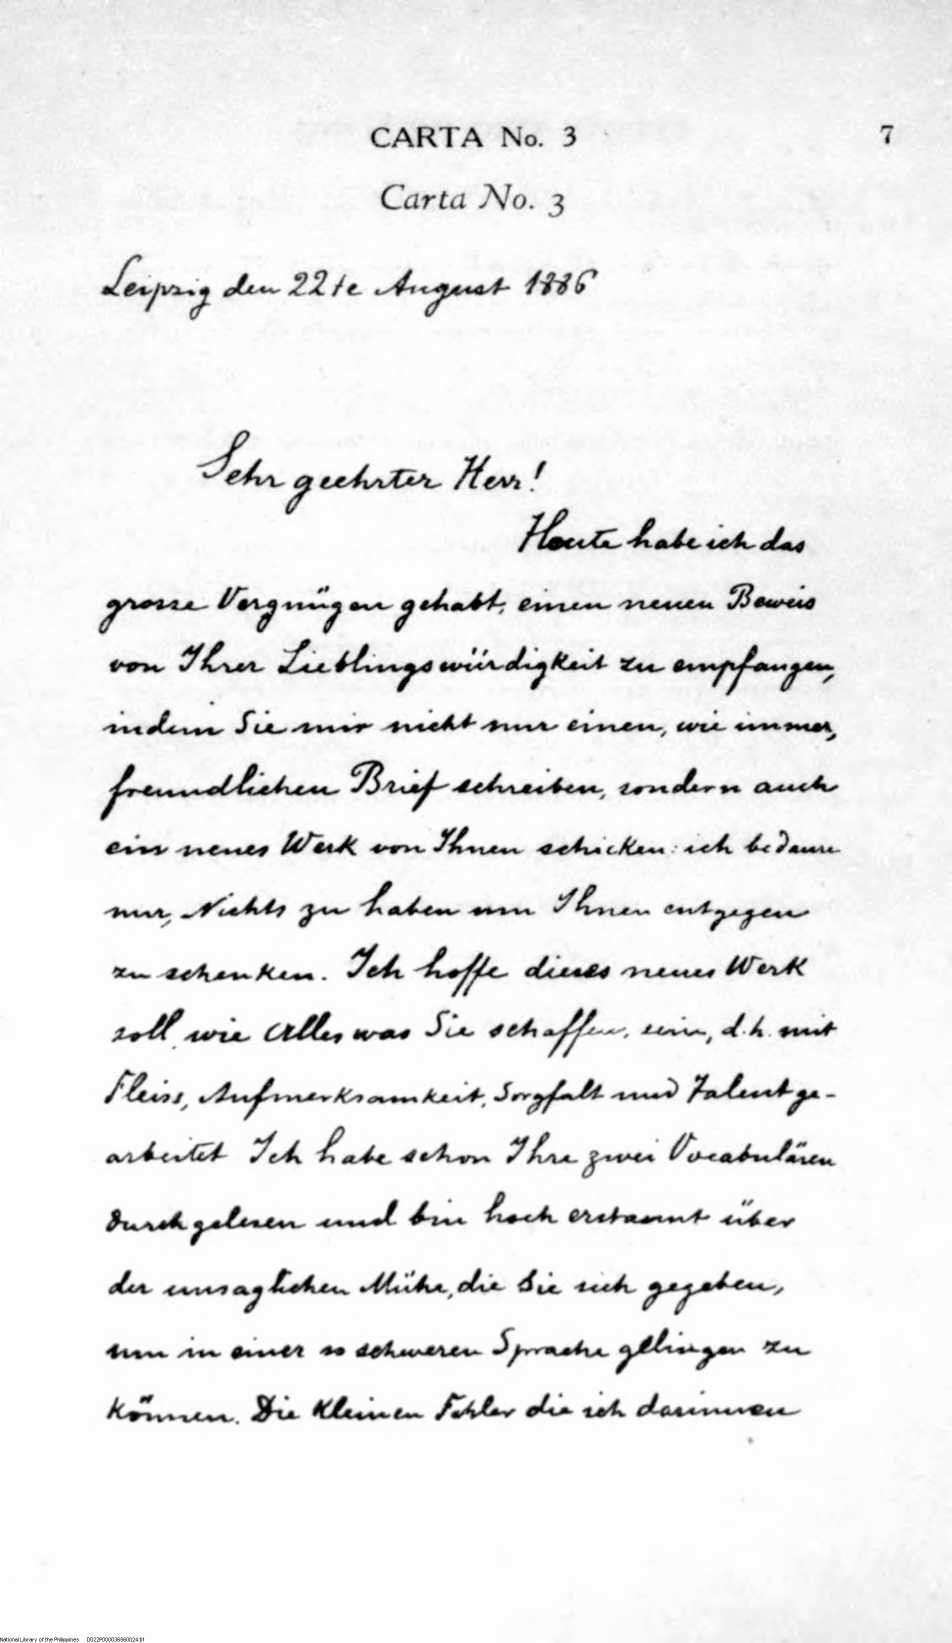 CARTA No. 3
7
Carta No. 3
Leipzig den 22te August 1886
Sehr geehrter Herr!
Heute habe ich das
grosse Vergnügen gehabt, einen neuen Beweis
von Ihrer Lieblingswürdigkeit zu empfangen,
indem Sie mir nicht nur einen, wie immer,
freundlichen Brief schreiben, sondern auch
ein neues Werk von Ihnen schicken: ich bedaure
nur, Nichts zu haben um Ihnen entgegen
zu schenken. Ich hoffe dieses neues Werk
soll, wie Alles was Sie schaffen, sein, d.h. mit
Fleiss, Aufmerksamkeit, Sorgfalt und Talent ge-
arbeitet Ich habe schon Ihre zwei Vocabulären
durchgelesen und bin hoch erstaunt über
der unsaglichen Mühe, die Sie sich gegeben,
um in einer so schweren Sprache gelingen zu
können. Die kleinen Fehler die ich darinnen
National Library of the Philippines